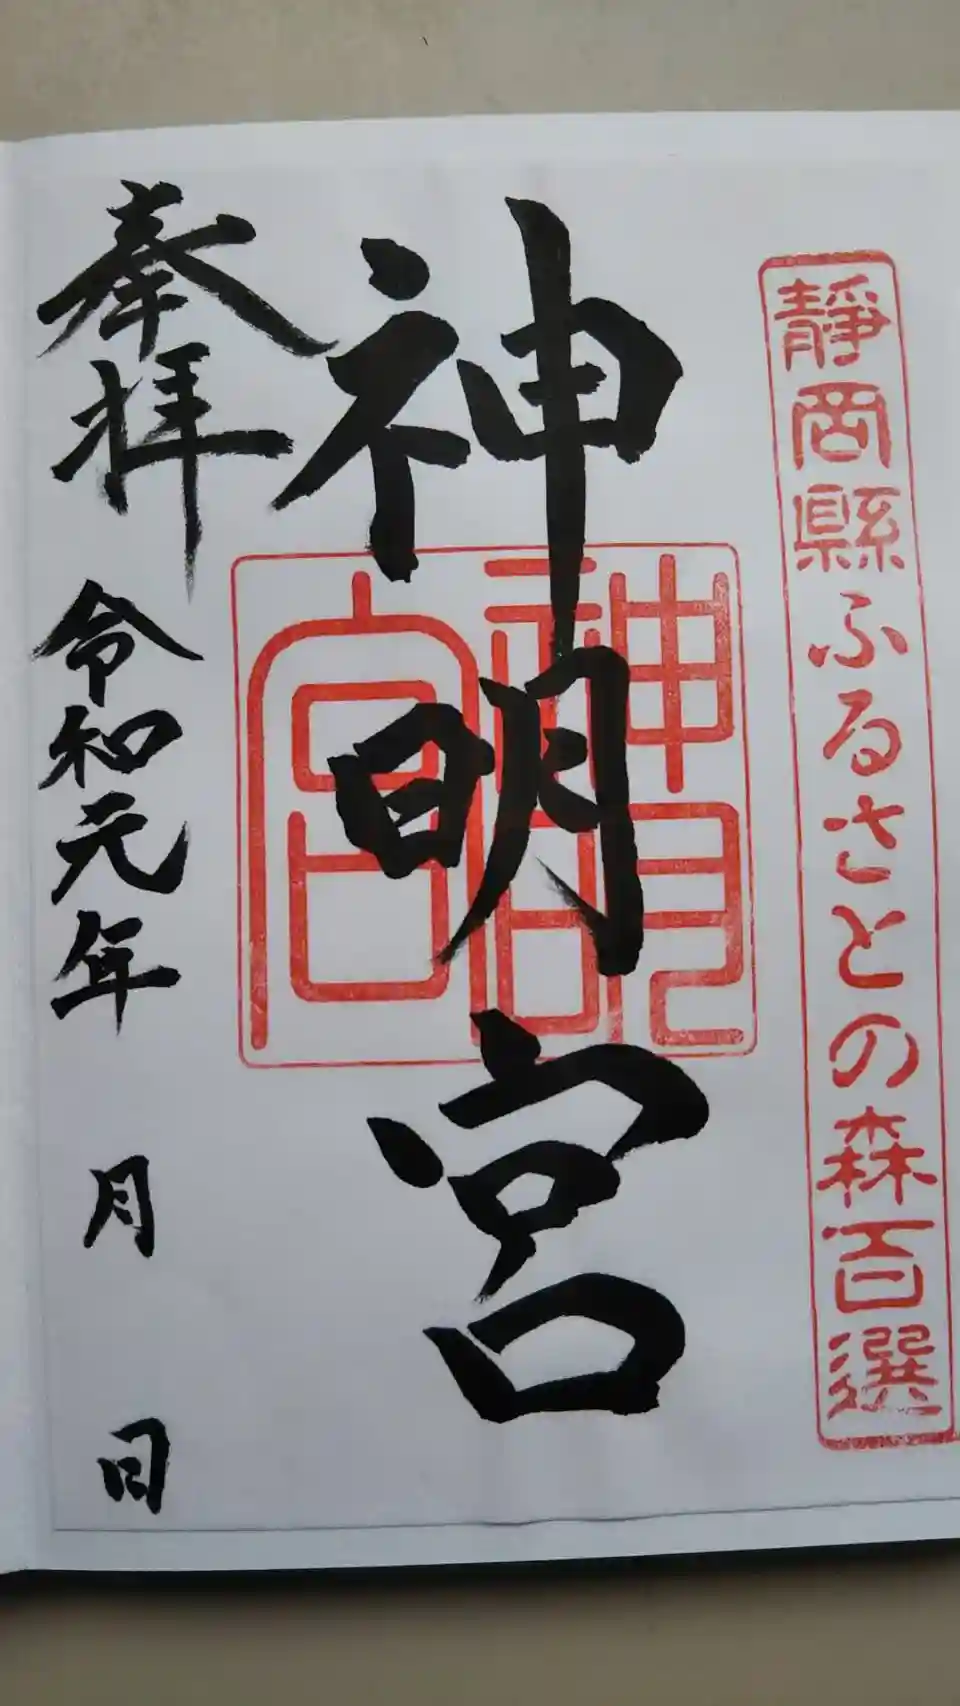 靜岡縣ふるさとの森百選
神明宮
神明宮
奉拝 令和元年 月 日